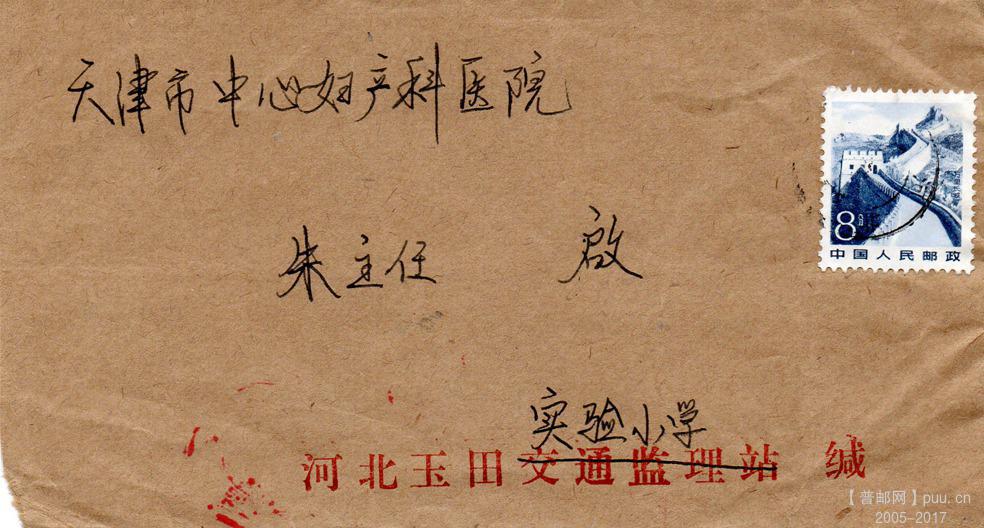 天津市中心妇产科医院
8
中国人民邮政
朱主任 啟
实验小学
河北玉田交通监理站 缄
【普邮网】puu.cn
2005-2017